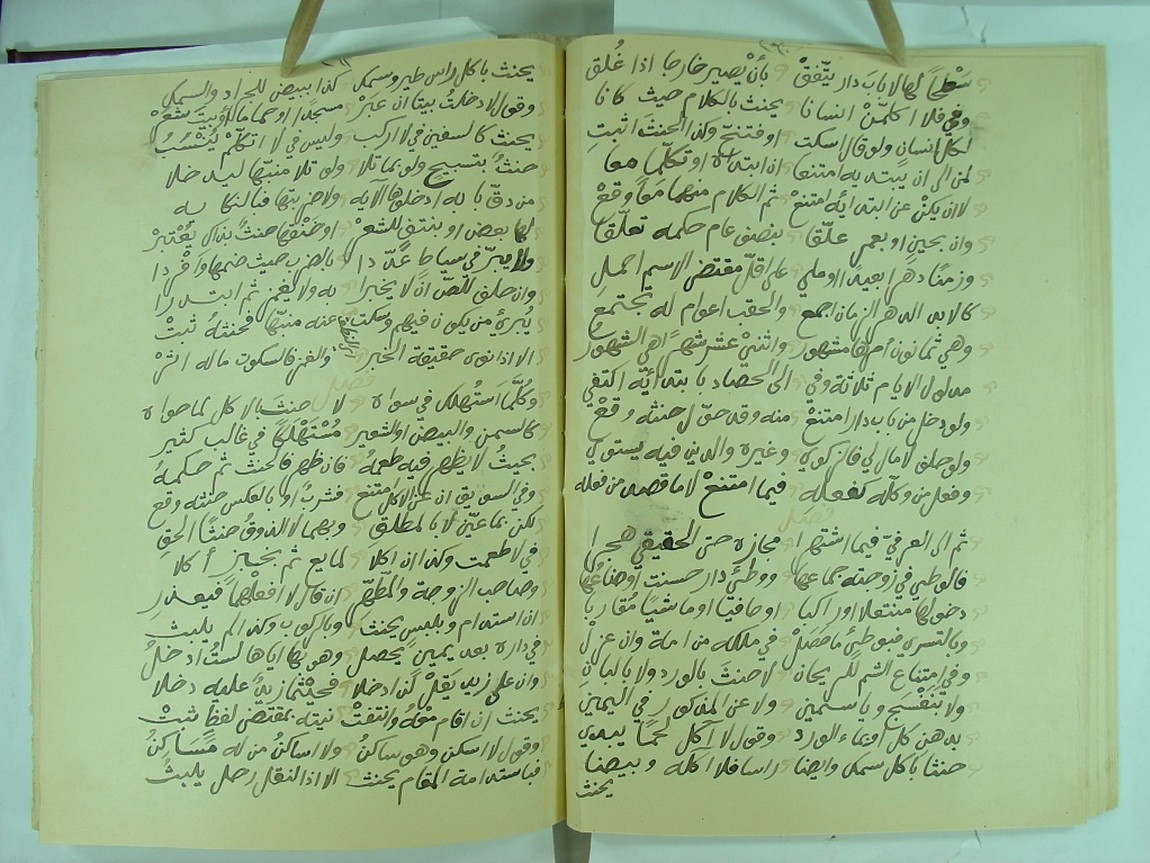 سطحا لها لا باب دار يتفق بأن يصير خارجا اذا غلق
وفي فلا اكلمن انسانا يحنث بالكلام حيث كانا
لكل انسان ولو قال اسكت او فتنح وكذا الحنث اثبت
لمن الى ان يبتديه امتنعا ان ابتداه او تكلما معا
لا ان يكن عن ابتدائه امتنع ثم الكلام منهما معا وقع
وان بحين او بعمر علقا بنصف عام حكمه تعلقا
وزمنا دهرا بعيدا او ملي على اقل مقتضى الاسم احمل
كالابد الدهر الزمان اجمع والحقب اعوام له تجتمع
وهي ثمانون أمرها مشهور واثني عشر شهرا هي الشهور
مدلول الايام ثلاثة وفي الى الحصاد بابتدائه اكتفي
ولو دخل من باب دار امتنع منه وقد حول حنثه وقع
ولو حلف لا مال لي فان كوي وغيره والدين فيه يستوي
وفعل من وكله كفعله فيما امتنع لا ما قصد من فعله
فصل
ثم الى العرفي فيما اشتهرا مجازه حتى الحقيقي هجرا
فالوطي في زوجته جماعها ووطئ دار حسنت اوضاعها
دخولها منتعلا او راكبا او حافيا او ماشيا مقاربا
وبالتسري فبوطئ ما حصل في ملكه من امة وان عزل
وفي امتناع الشم للريحان لا حنث بالورد ولا بالبان
ولا بنفسج وياسمين ولا عن المذكور في اليمين
بدهن كل او بماء الورد وقول لا آكل لحما يبدي
حنثا بأكل سمك وايضا راسا فلا اكله وبيضا
يحنث
يحنث باكل راس طير وسمك كذا ببيض للجراد والسمك
وقول لا دخلت بيتا ان عبر مسجدا او حماما او بيت شعر
يحنث كالسفين في لا اركب وليس في لا اتكلم ينسب
حنث بتسبيح ولو بما تلا ولو تلا منبها ليدخلا
من دق بابه ادخلوها الآيه ولا ضربتها فبالنكايه
لها بعض او بنتف للشعر او خنقها حنث بذاك يعتبر
ولا يبر في سياط عددا بالضرب حيث ضمها وافردا
وان حلف للص ان لا يخبرا به ولا يغمز ثم ابتدرا
يبرئ من يكون فيهم وسكت عنه منبها فحنثه ثبت
الا اذا نوى حقيقة الخبر والغمز فالسكوت ماله اثر
فصل
وكلما استهلك في سواه لا حنث الا كل لما حواه
كالسمن والبيض او الشعير مستهلكا في غالب كثير
بحيث لا يظهر فيه طعمه فان ظهر فالحنث ثم حكمه
وفي السويق ان عن الاكل امتنع فشرب او بالعكس حنثه وقع
لكن بما عين لا بالمطلق وبهما لا الذوق حنثا الحق
في لا طعمت وكذا ان اكلا لمايع ثم بخبز أكلا
وصاحب الزوجة والمطهر ان قال لا افعلهما فيعذر
ان استدام وبلبس يحنث وبالركوب وكذا لم يلبث
في داره بعد يمين يحصل وهو بها اياها لست ادخل
وان على زيد يقل لن ادخلا فحيثما زيد عليه دخلا
يحنث ان اقام معه وانتفت نيته بمقتضى لفظ ثبت
وقول لا اسكن وهو ساكن ولا اساكن من له مساكن
فباستدامة المقام يحنث الا اذا لنقل رحل يلبث